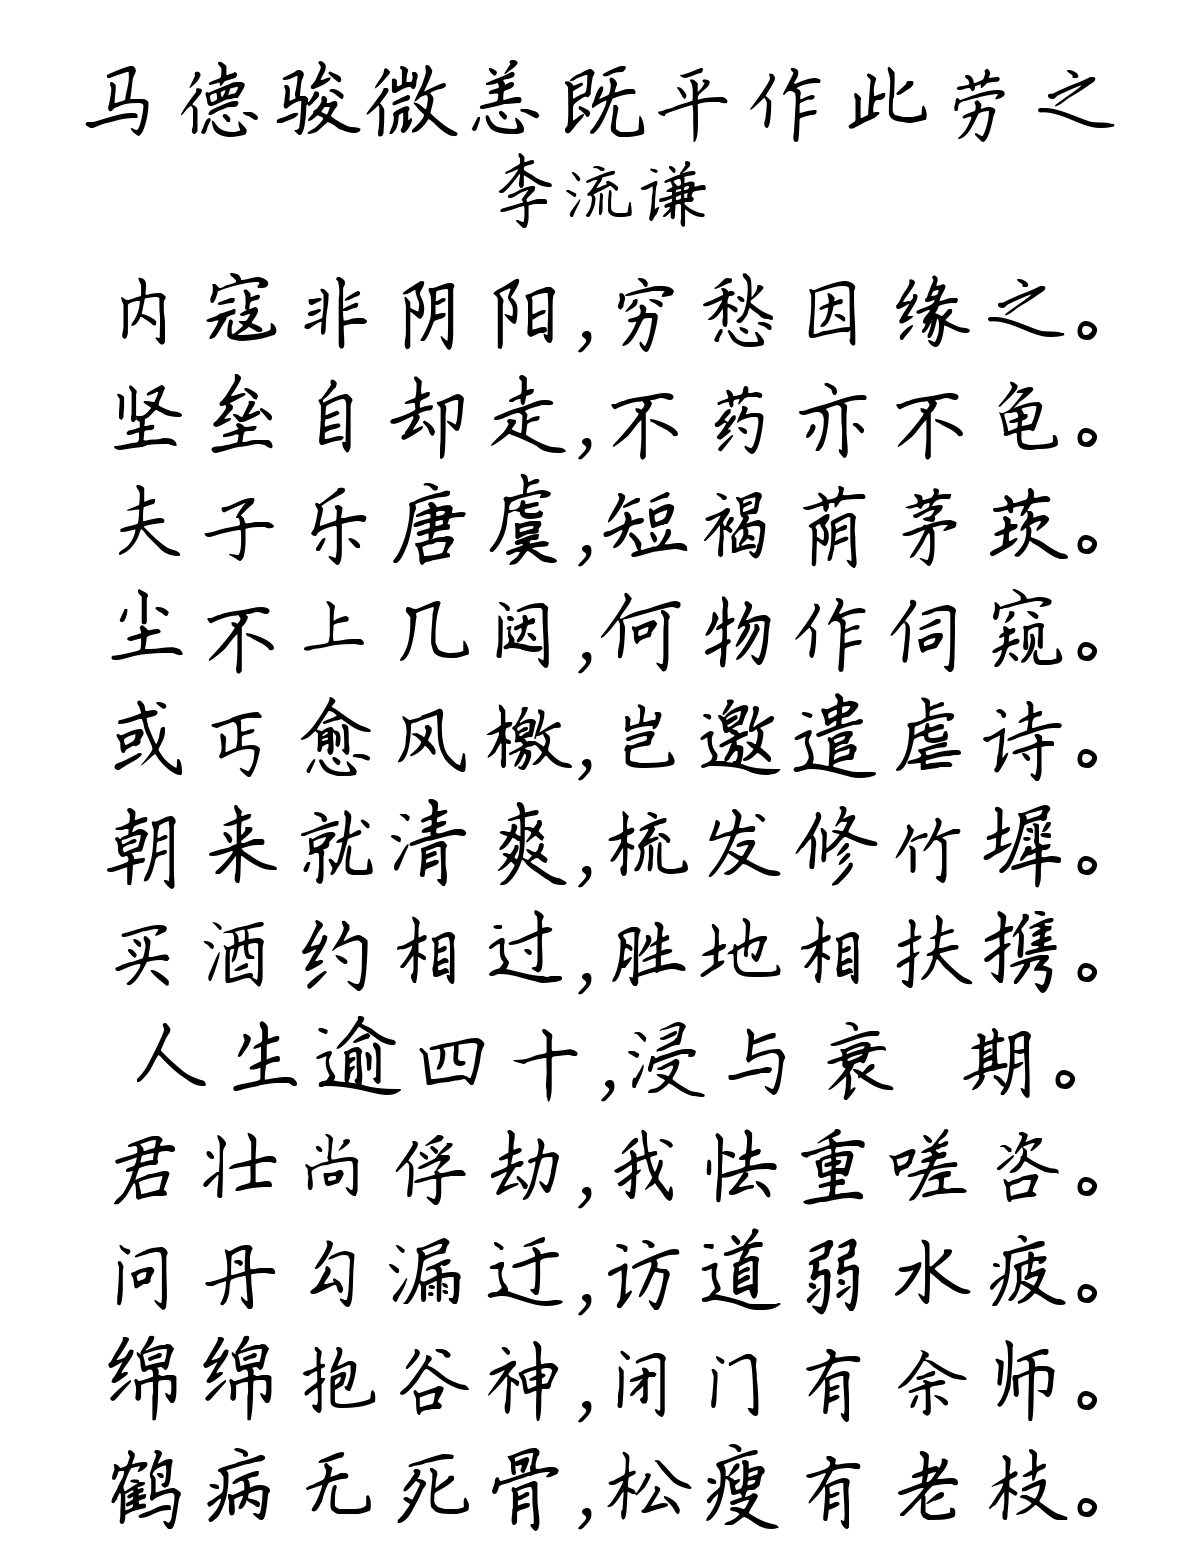 马德骏微恙既平作此劳之
李流谦
内寇非阴阳,穷愁因缘之。
坚垒自却走,不药亦不龟。
夫子乐唐虞,短褐荫茅茨。
尘不上几闼,何物作伺窥。
或丐愈风檄,岂邀遣虐诗。
朝来就清爽,梳发修竹墀。
买酒约相过,胜地相扶携。
人生逾四十,浸与衰 期。
君壮尚俘劫,我怯重嗟咨。
问丹勾漏迂,访道弱水疲。
绵绵抱谷神,闭门有余师。
鹤病无死骨,松瘦有老枝。